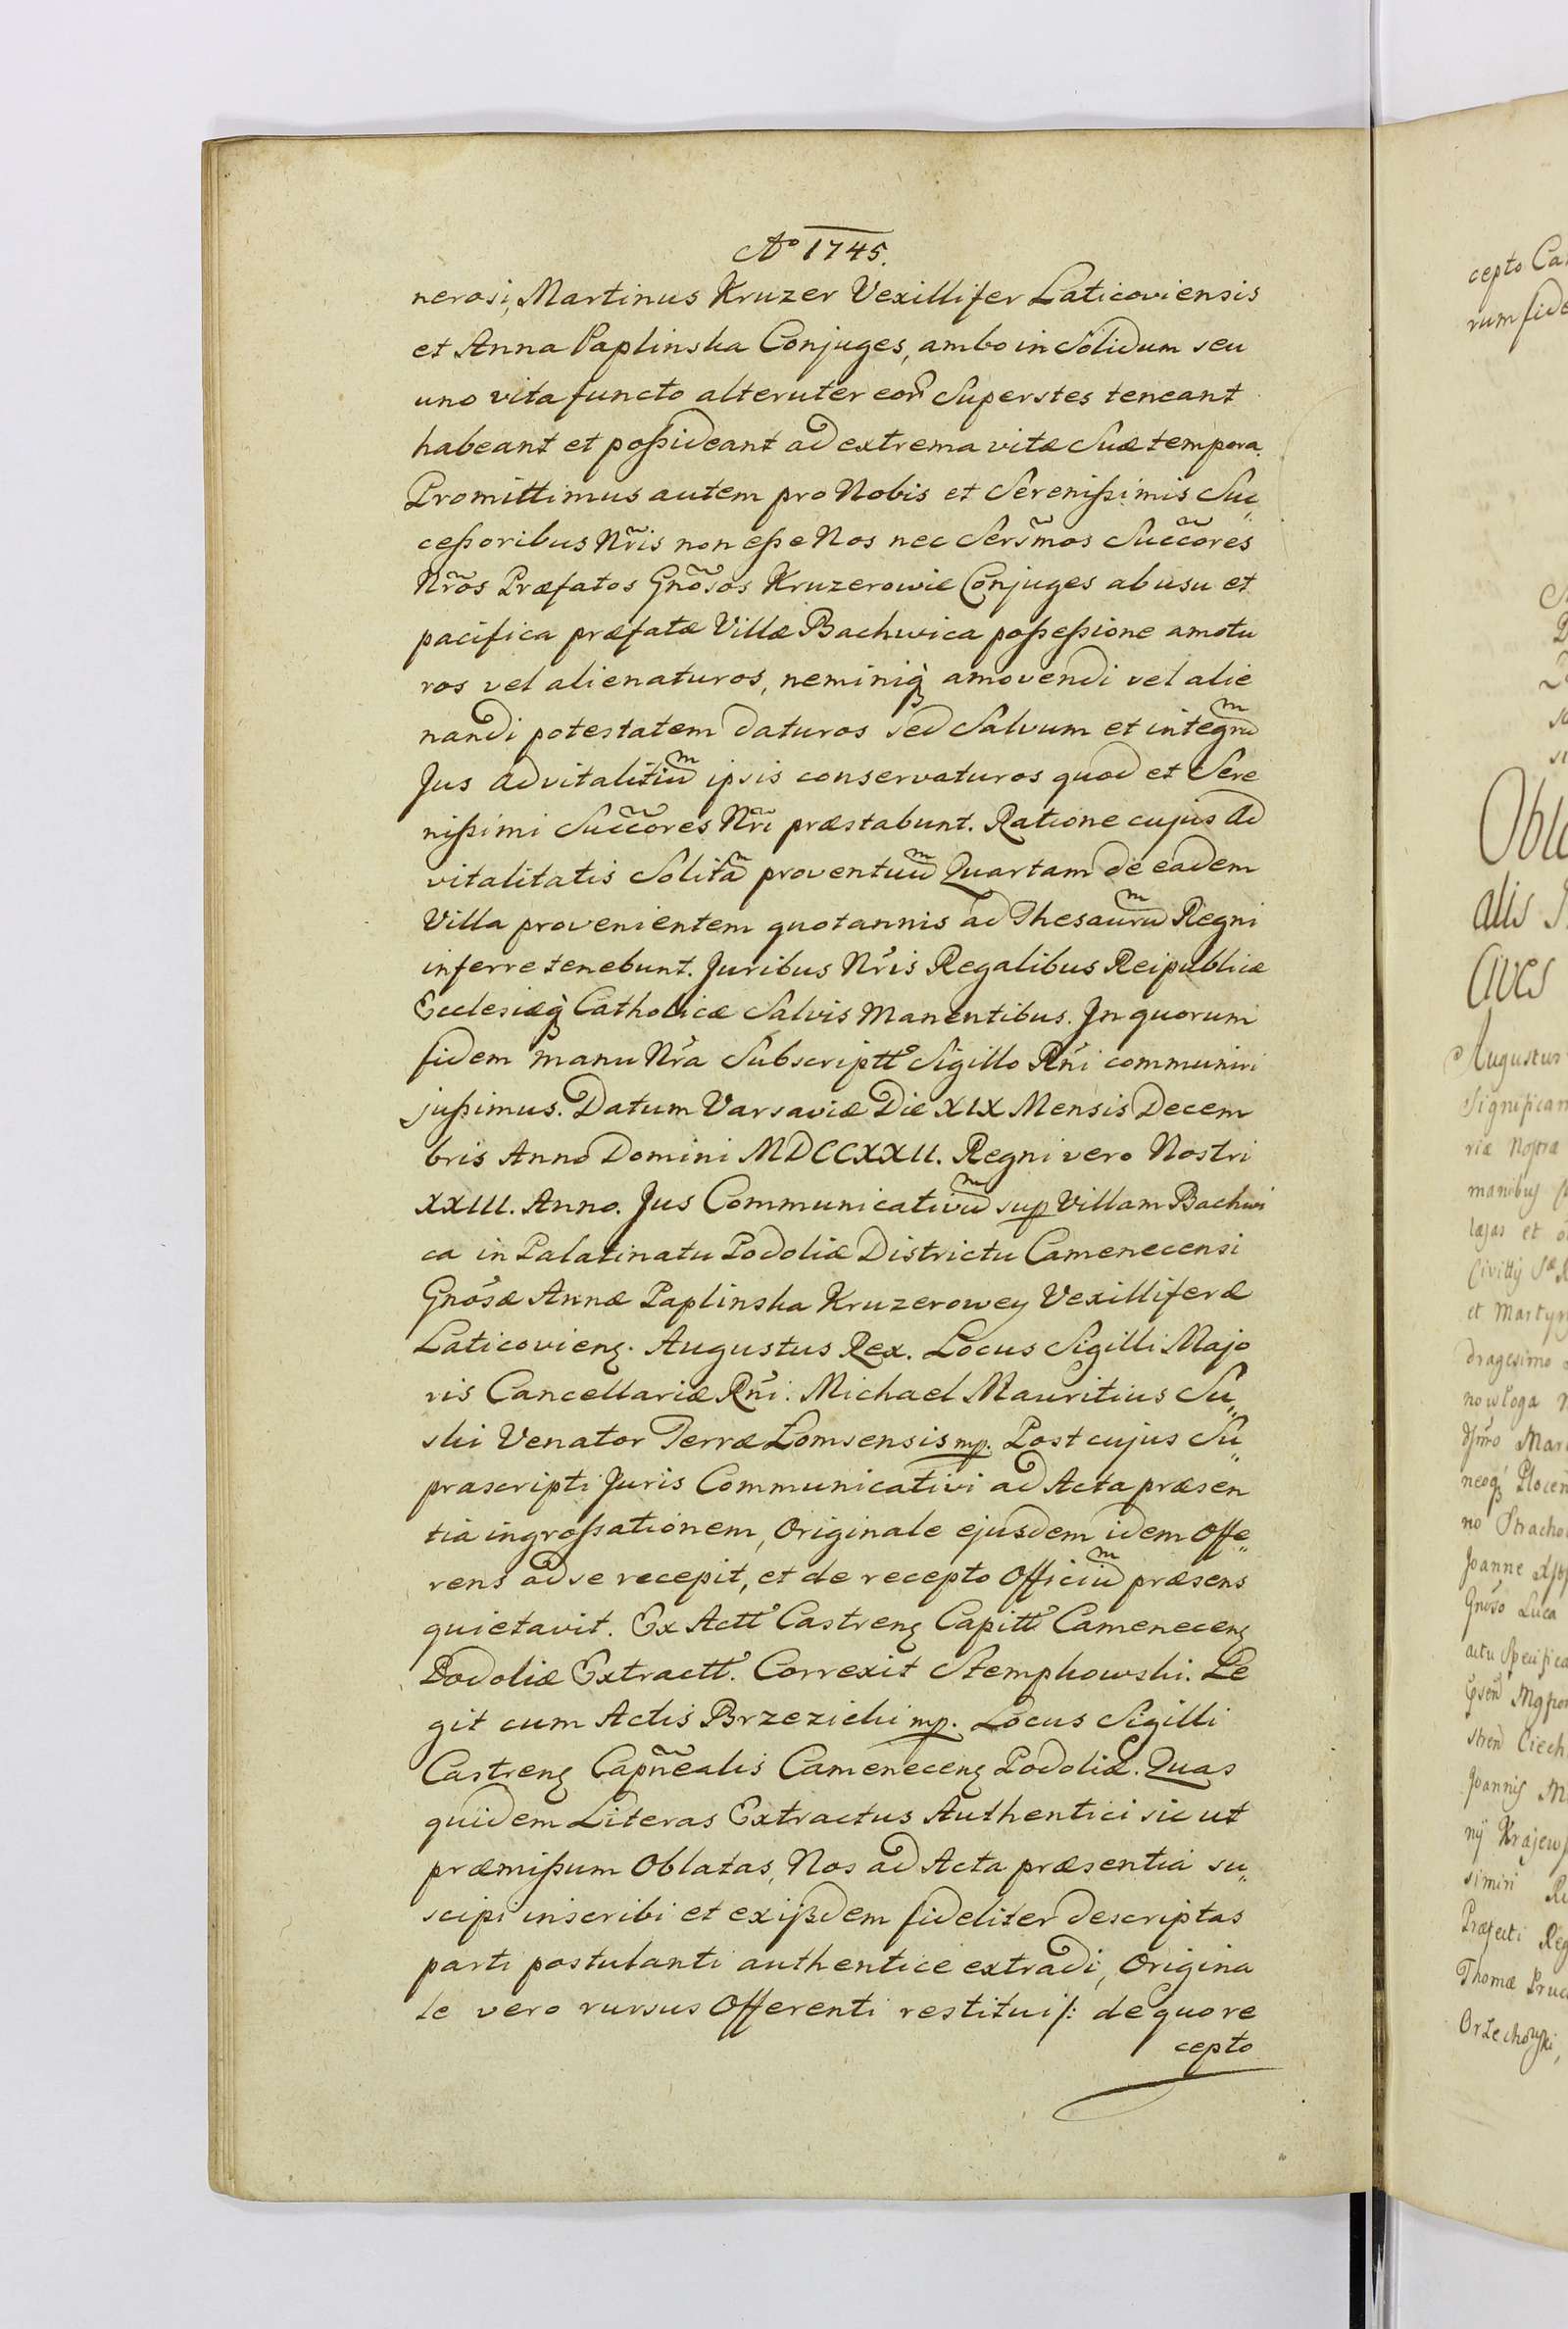 Aº 1745.
nerosi, Martinus Kruzer Vexillifer Laticoviensis
et Anna Paplinska Conjuges, ambo in Solidum seu
uno vita functo alteruter eor̃ Superstes teneant
habeant et poßideant ad extrema vitæ Suæ tempora.
Promittimus autem pro Nobis et Serenißimis Suc„
ceßoribus Nr̃is non eße Nos nec Sersm̃os Succ̃ores
Nr̃os Præfatos Gnõsos Kruzerowie Conjuges ab usu et
pacifica præfatæ Villæ Bachwica poßeßione amotu
ros vel alienaturos, neminiq̀ amovendi vel alie
nandi potestatem daturos sed Salvum et integrũ
Jus advitalitiũ ipsis conservaturos quod et Sere
nißimi Succ̃ores Nr̃i præstabunt. Ratione cujus Ad
vitalitatis Solitã proventuũ Quartam de eadem
Villa provenientem quotannis ad Thesaurũ Regni
inferre tenebunt. Juribus Nr̃is Regalibus Reipublicæ
Ecclesiæq̀ Catholicæ Salvis Manentibus. Jn quorum
fidem manu Nr̃a Subscriptt̃ Sigillo Rñi communiri
jußimus. Datum Varsaviæ Die XIX Mensis Decem
bris Anno Domini MDCCXXII. Regni vero Nostri
XXIII. Anno. Jus Communicativũ sup Villam Bachwi
ca in Palatinatu Podoliæ Districtu Camenecensi
Gnõsæ Annæ Paplinska Kruzerowey Vexilliferæ
Laticovieng. Augustus Rex. Locus Sigilli Majo
ris Cancellariæ Rñi. Michael Mauritius Su„
ski Venator Terræ Łomsensis mp. Post cujus Su„
prascripti Juris Communicativi ad Acta præsen
tia ingroßationem, Originale ejusdem idem Offe„
rens ad se recepit, et de recepto Officiũ præsens
quietavit. Ex Actt̃ Castreng Capitt̃ Cameneceng
Podoliæ Extractt̃. Correxit Stempkowski. Le
git cum Actis Brzezicki mp. Locus Sigilli
Castreng Capñealis Cameneceng Podoliæ. Quas
quidem Literas Extractus Authentici sic ut
præmißum Oblatas, Nos ad Acta præsentia su„
scipi inscribi et ex ijsdem fideliter descriptas
parti postulanti authentice extradi, Origina
le vero rursus Offerenti restitui /: de quo re
cepto
cepto
rum fide
alis
Cives
Augustus
Significam
riæ Nostra
manibus
et Martyr
dragesimo
Joanne
Gnõso Luca
Joannis
Præfecti Reg
Thomæ
Orzechowski,